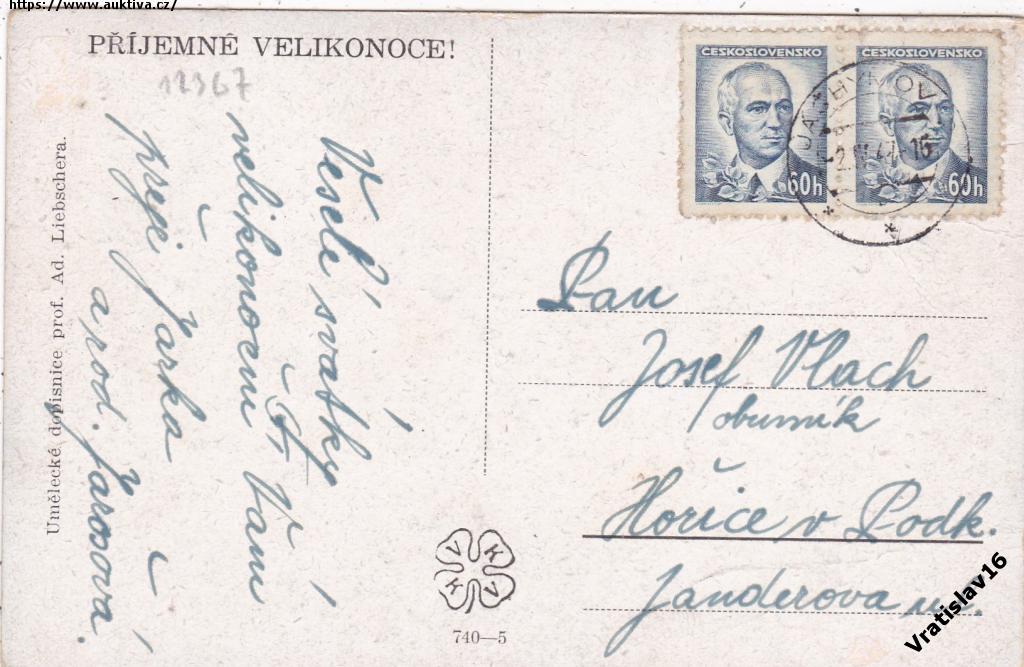 https://www.auktiva.cz/
PŘÍJEMNÉ VELIKONOCE!
12367
Veselé svátky
velikonoční Vám
přeje Jarka
a rod. Jarošová.
Umělecké dopisnice prof. Ad. Liebschera.
V K
K V
740—5
ČESKOSLOVENSKO
60h
ČESKOSLOVENSKO
60h
JÁCHYMOV
Pan
Josef Vlach
obuvník
Hořice v Podk.
Janderova ul.
Vratislav16